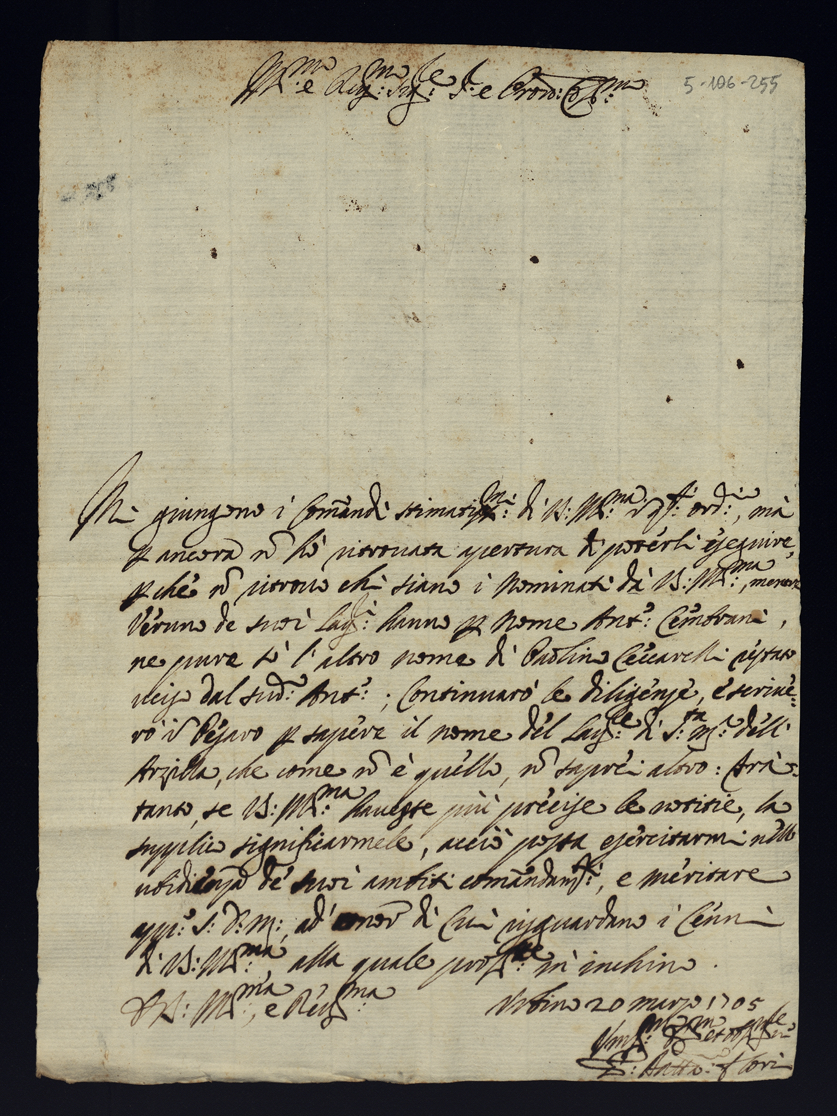 Ill:mo e Rev:mo Sig:re Sig:re e Pron: Col:mo
5-106-255
Mi giungono i Comandi stimatiss:mi di V: Ill:ma ord:, mà
p ancora nõ hò ritrovata apertura di poterli eseguire,
p chè nõ ritrovo chi siano i nominati dà V: Ill:ma, mentre
Veruno de suoi hanno p nome Ant:o Cembrani,
ne pure sò l'altro nome di Paolino Ceccarelli
dal sud:o Ant:o; Continuarò le diligenze, e scrive=
rò ĩ Pesaro p sapere il nome del di S:ta M:a dell'
Arzilla, che come nõ è quello, nõ saprei altro: Frà
tanto, se V: Ill:ma havesse più precise le notitie, la
supplico significarmele, acciò possa esercitarmi nell
ubidienza de suoi ambiti comandam:ti, e meritare
S: D: M:, ad onor di Cui risguardano i Cenni
di V: Ill:ma alla quale m'inchino.
D V: Ill:ma, e Rev:ma Urbino 20 marzo 1705
Batta: Flori